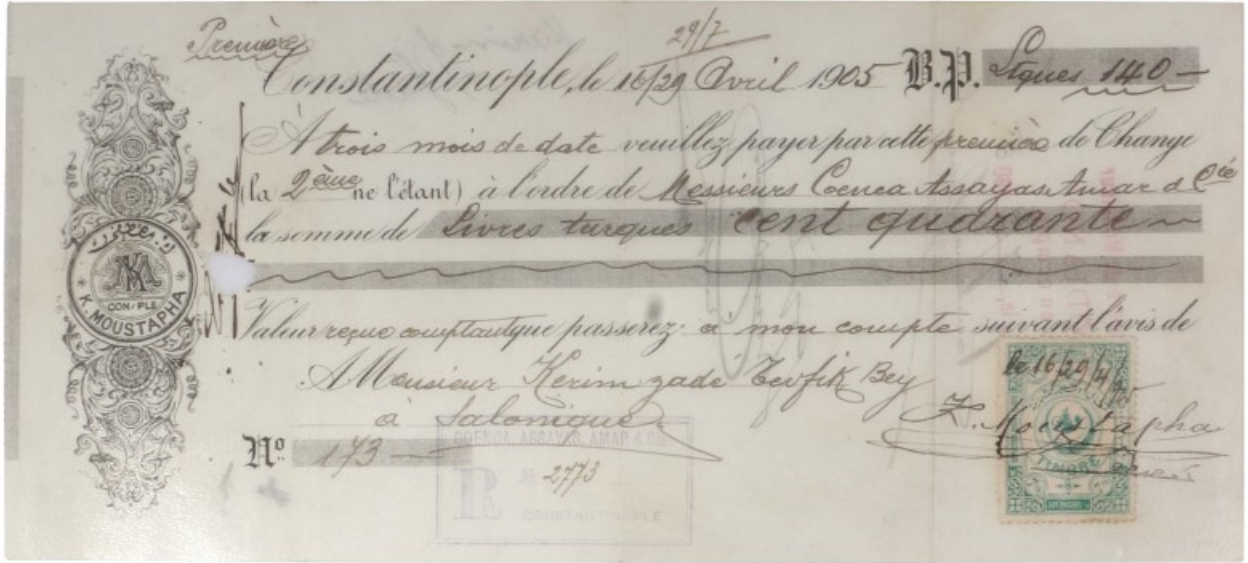 Première
29/7
Constantinople, le 16/29 Avril 1905 B.P. Ltques 140
À trois mois de date veuillez payer par cette première de Change
(la 2ème ne l'étant) à l'ordre de Messieurs Coenca Assayas Amar & Cie
la somme de Livres turques cent quarante
Valeur reçue comptant que passerez à mon compte suivant l'avis de
A Monsieur Kerim zadé Tevfik Bey
à Salonique
No 173
K. Moustapha
le 16/29/4/905
TIMBRE
KM
CON/PLE
K. MOUSTAPHA
COENCA, ASSAYAS, AMAR & CIE
R No 2773
CONSTANTINOPLE